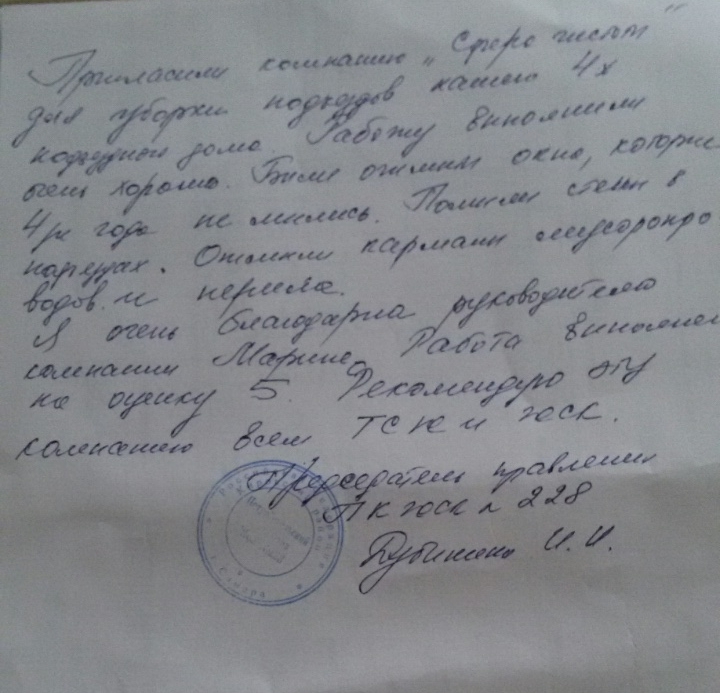 Пригласили компанию „Сфера чистоты"
для уборки подъездов нашего 4х
подъездного дома. Работу выполнили
очень хорошо. Были отмыты окна, которые
4ре года не мылись. Помыли стены в
подъездах. Отмыли карманы мусоропро
водов. и перила.
Я очень благодарна руководителю
компании Марине. Работа выполнена
на оценку 5. Рекомендую эту
компанию всем ТСЖ и ЖСК.
Председатель правления
ПК ЖСК № 228
И.И.
Российская Федерация
г. Самара